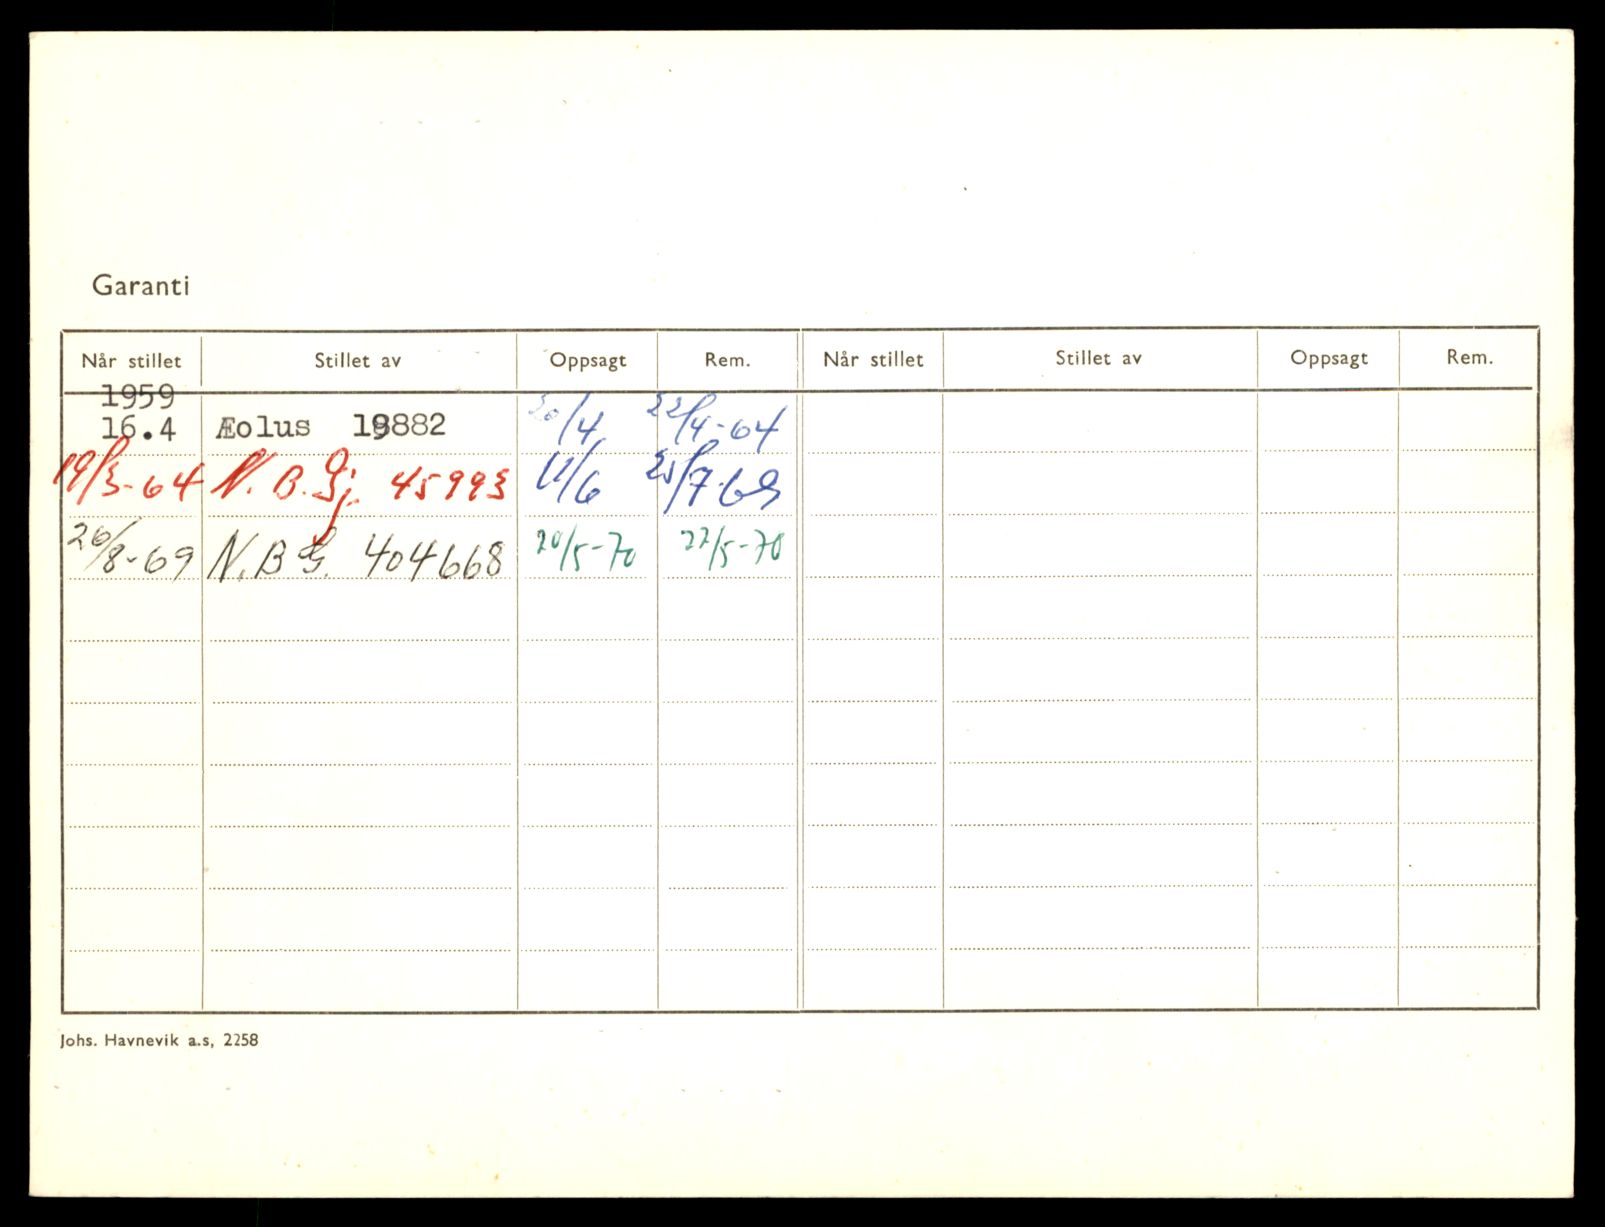 Garanti
Når stillet Stillet av Oppsagt Rem. Når stillet Stillet av Oppsagt Rem.
1959
16.4 Æolus 19882 20/4 22/4-64
19/3-64 N.B.Gj. 45993 11/6 25/7-69
26/8-69 N.B.G. 404668 20/5-70 22/5-70
Johs. Havnevik a.s, 2258